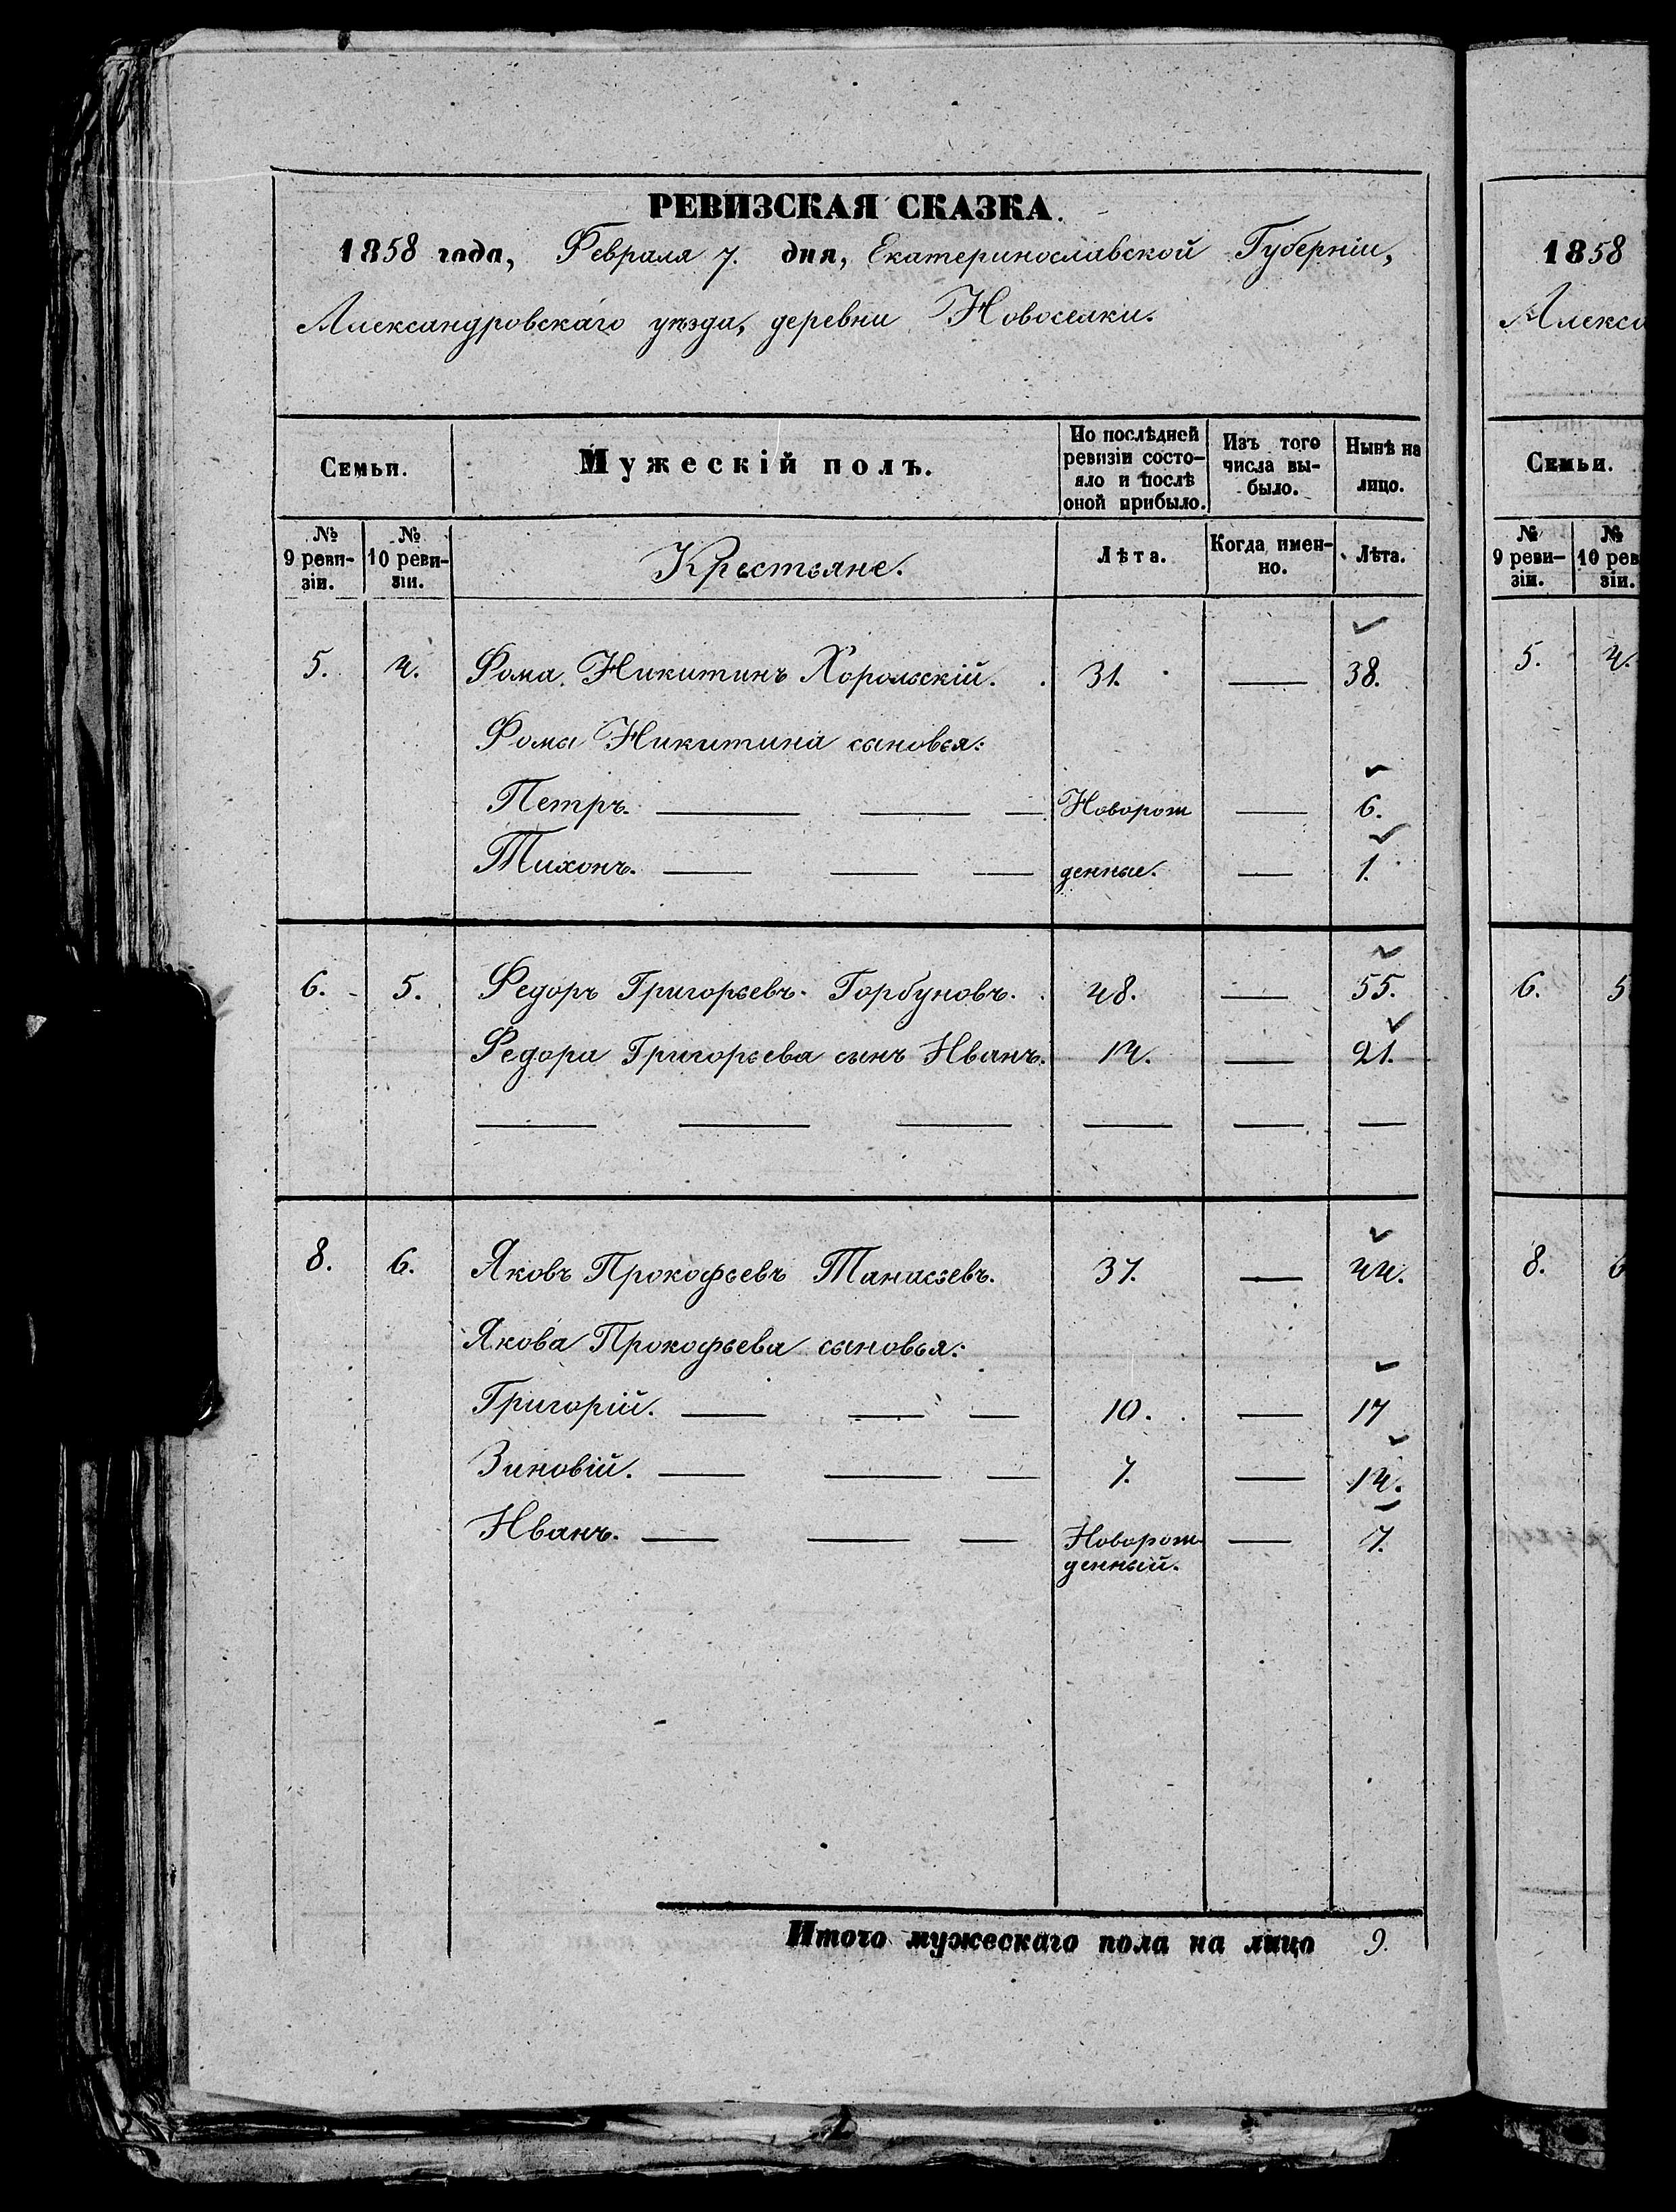 РЕВИЗСКАЯ СКАЗКА.
1858 года, Февраля 7. дня, Екатеринославской Губерніи,
Александровскаго уѣзда, деревни Новоселки.
Семьи. Мужескій полъ. По послѣдней ревизіи состояло и послѣ оной прибыло. Изъ того числа выбыло. Нынѣ на лицо.
№ 9 ревизіи. № 10 ревизіи. Крестьяне. Лѣта. Когда именно. Лѣта.
5. 4. Фома Никитинъ Хорольскій. 31. — 38.
Фомы Никитина сыновья:
Петръ. — — — Новорож — 6.
Тихонъ. — — — денные. — 1.
6. 5. Федоръ Григорьевъ Горбуновъ. 48. — 55.
Федора Григорьева сынъ Иванъ. 14. — 21.
— — — — — —
8. 6. Яковъ Прокофьевъ Танасьевъ. 37. — 44.
Якова Прокофьева сыновья:
Григорій. — — — 10. — 17
Зиновій. — — — 7. — 14.
Иванъ. — — — Новорож- — 7.
денный.
Итого мужескаго пола на лицо 9.
1858
Алекса
Семьи.
№ 9 ревизіи. № 10 рев зіи.
5. 4.
6. 5
8. 6